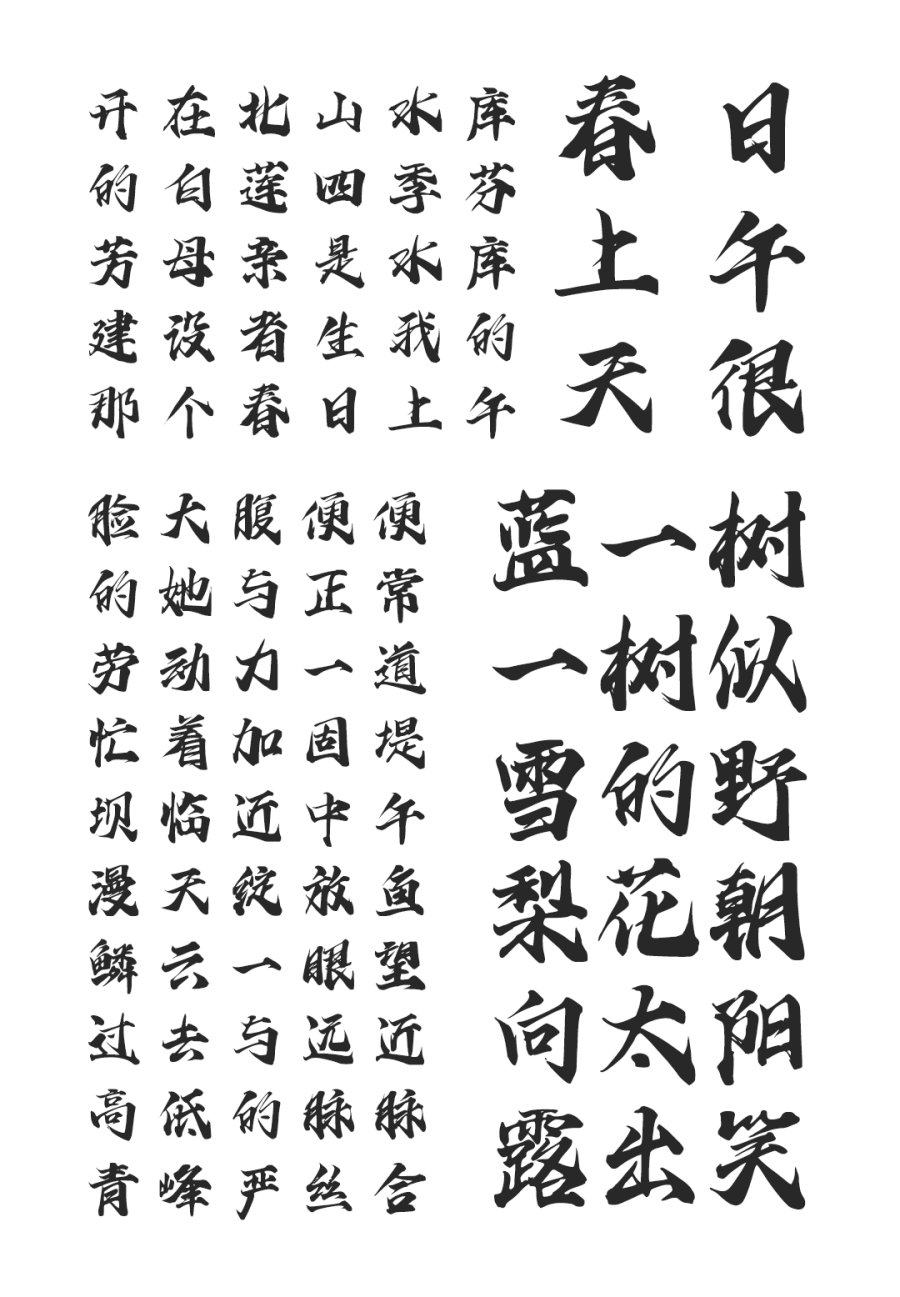 开在北山水库
的白莲四季芬
芳母亲是水库
建设者生我的
那个春日上午
春日
上午
天很
蓝一树
一树似
雪的野
梨花朝
向太阳
露出笑
脸大腹便便
的她与正常
劳动力一道
忙着加固堤
坝临近中午
漫天绽放鱼
鳞云一眼望
过去与远近
高低的脉脉
青峰严丝合